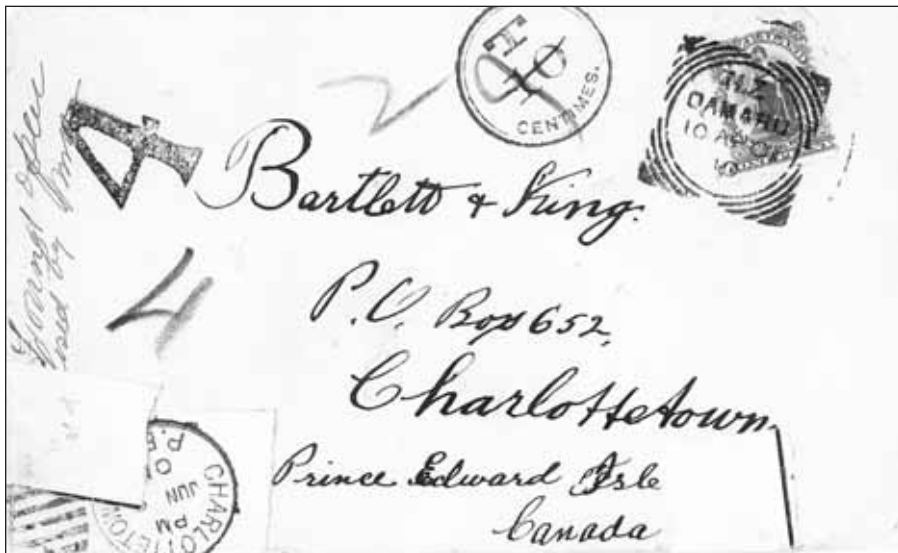 T
CENTIMES.
N.Z
OAMARU
10 AP 01
4
Bartlett & King.
4
P.O. Box 652,
Charlottetown.
Prince Edward Isle
Canada
Found open
by
CHARLOTTETOWN
P.E
JUN
PM